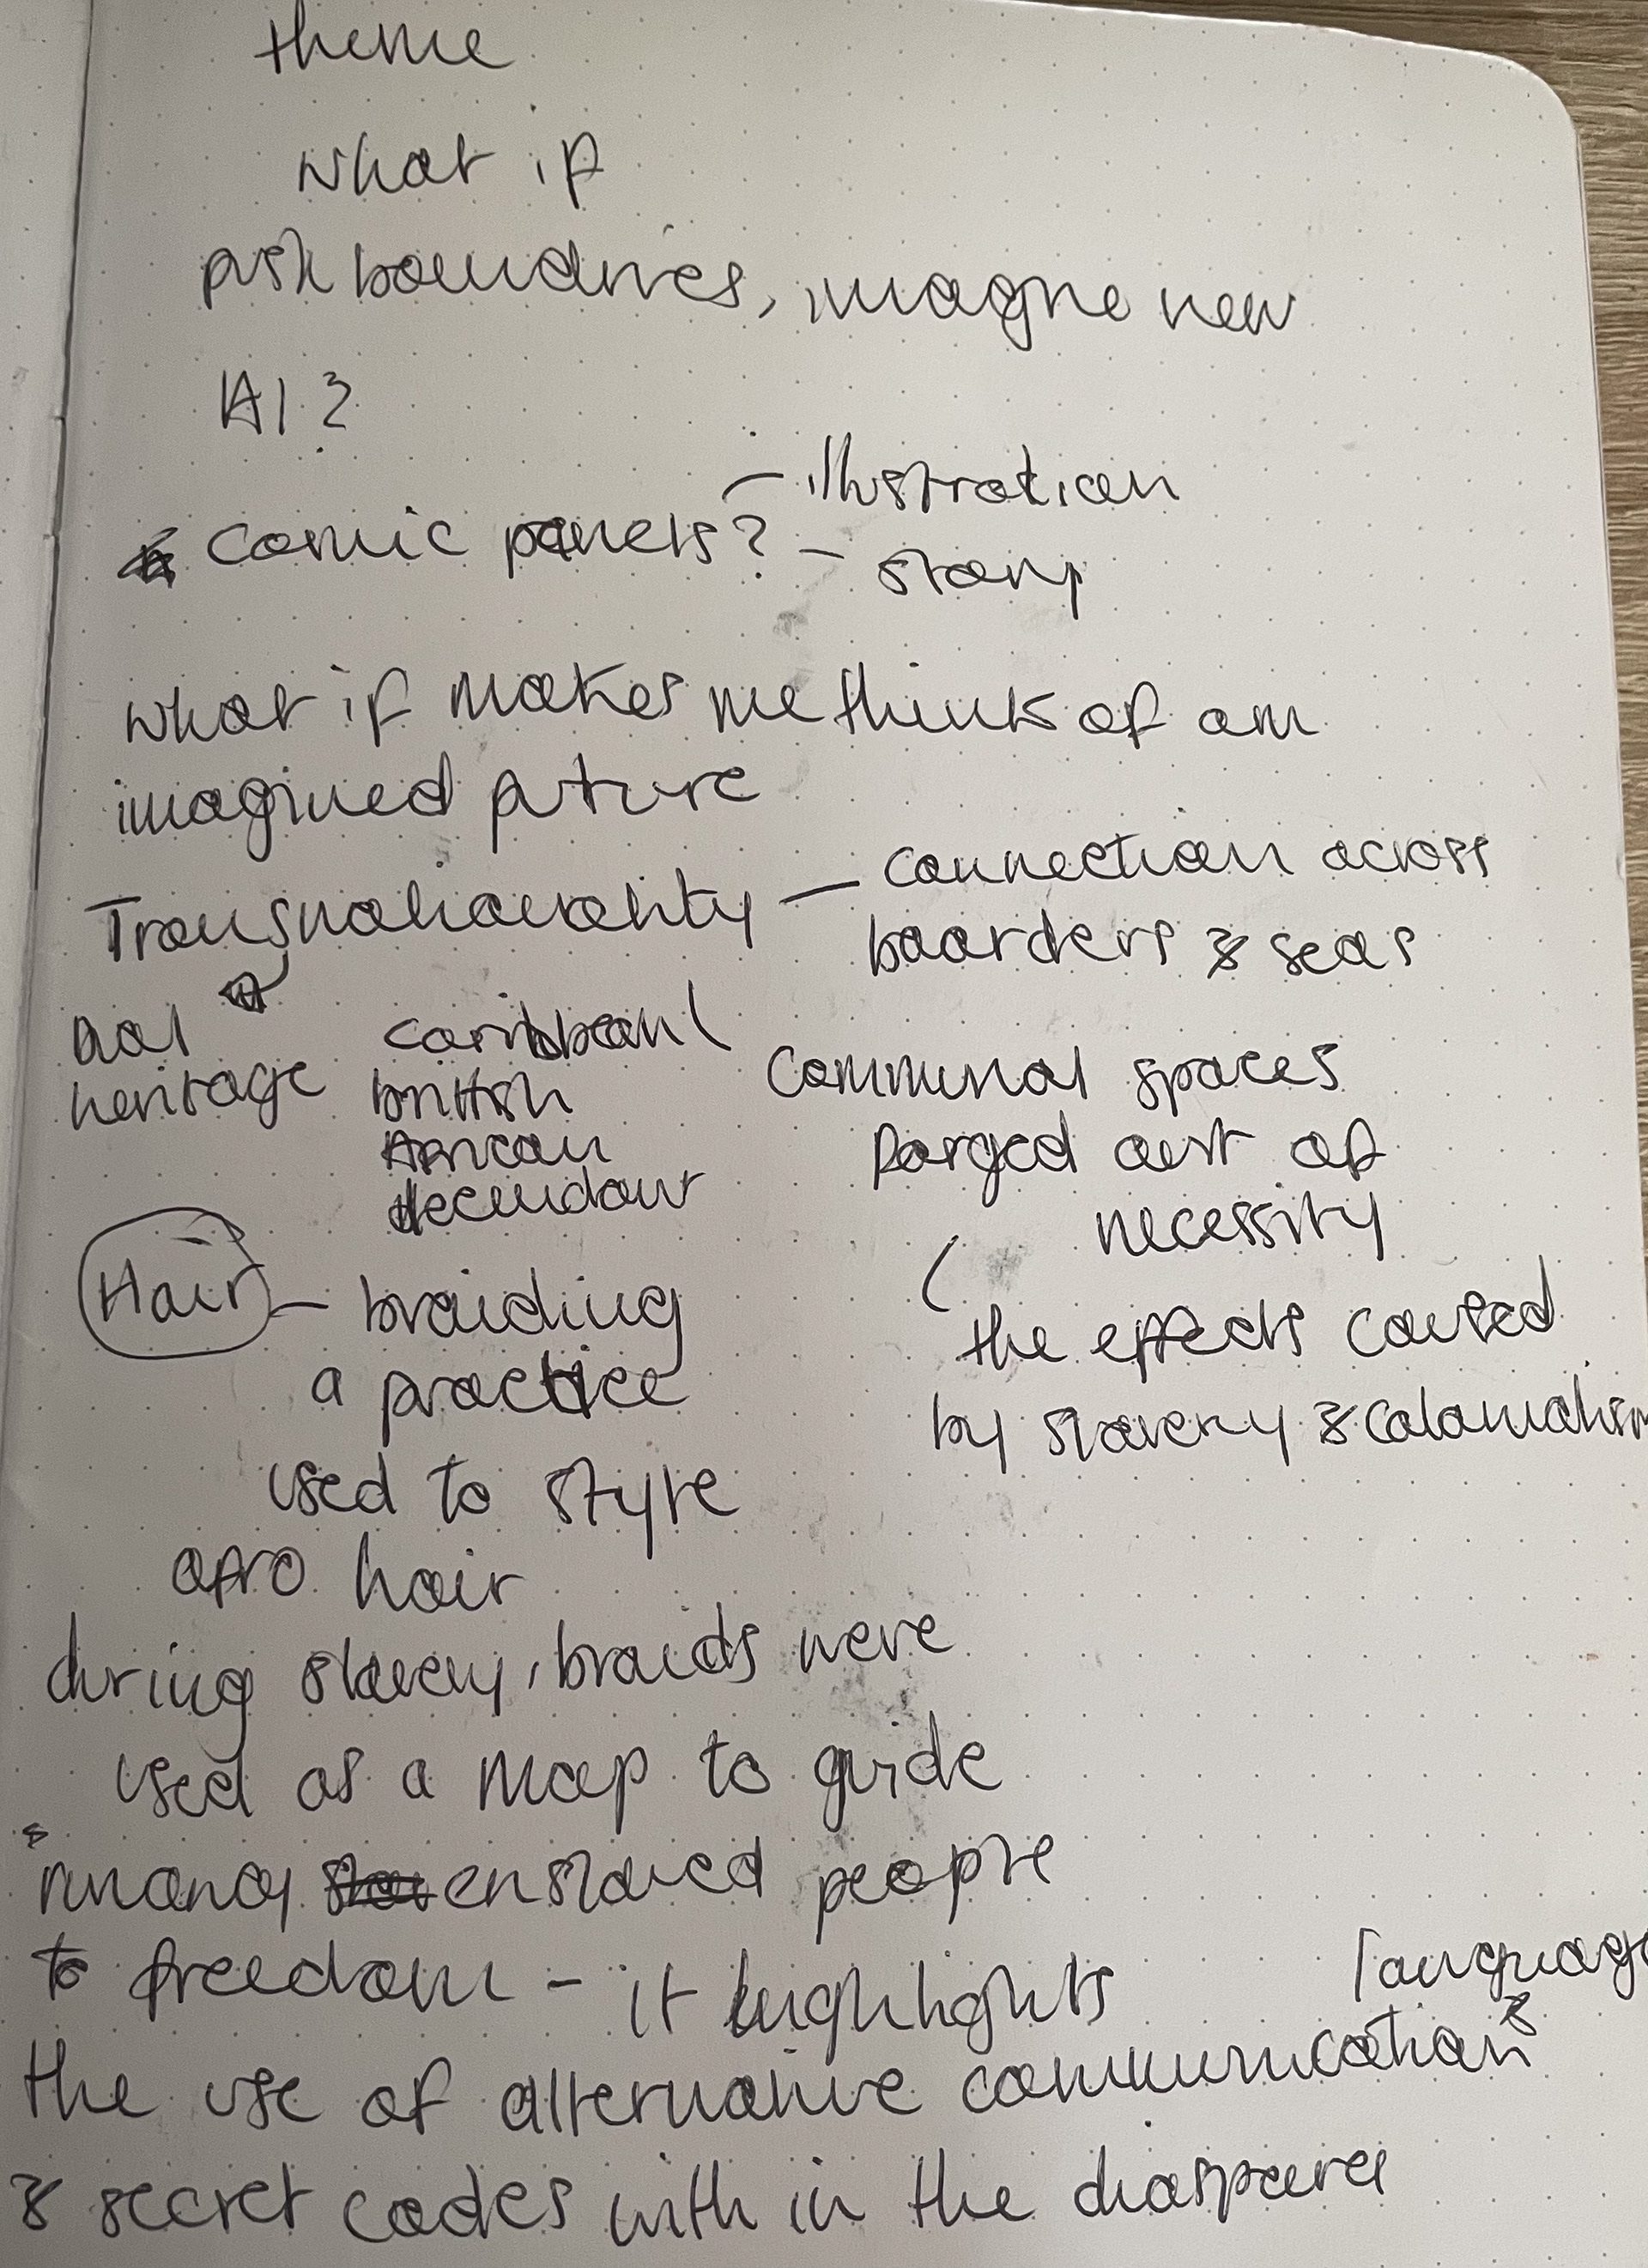 theme
what if
push boundries, imagine new
AI?
comic panels? - illustration
- story
what if makes me think of an
imagined future
Transnationality — connection across
boarders & seas
heritage
caribbean
british
African
decendant
communal spaces
forged out of
necessity
the effects caused
by slavery & colonialism
Hair — braiding
a practice
used to style
afro hair
during slavery, braids were
used as a map to guide
enslaved people
to freedom - it highlights
language &
the use of alternative communication
& secret codes with in the diaspora